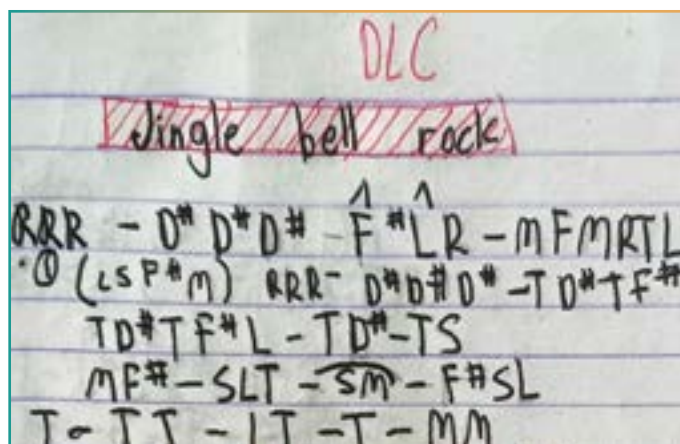 DLC
Jingle bell rock
RRR - D# D# D# - F# L R - M F M R T L
·① (L S F# M) RRR - D# D# D# - T D# T F#
T D# T F# L - T D# - T S
M F# - S L T - S M - F# S L
T - T T - L T - T - M M